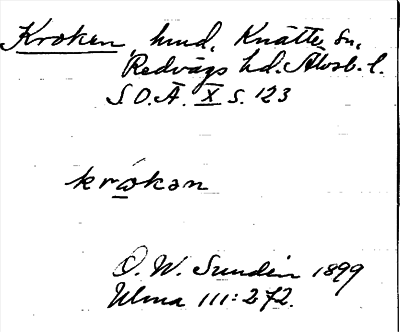 Kroken, hmd, Knätte sn,
Redvägs hd. Älvsb. l.
S O Ä. X s. 123
krokən
O. W. Sundén 1899
Ulma 111:272.